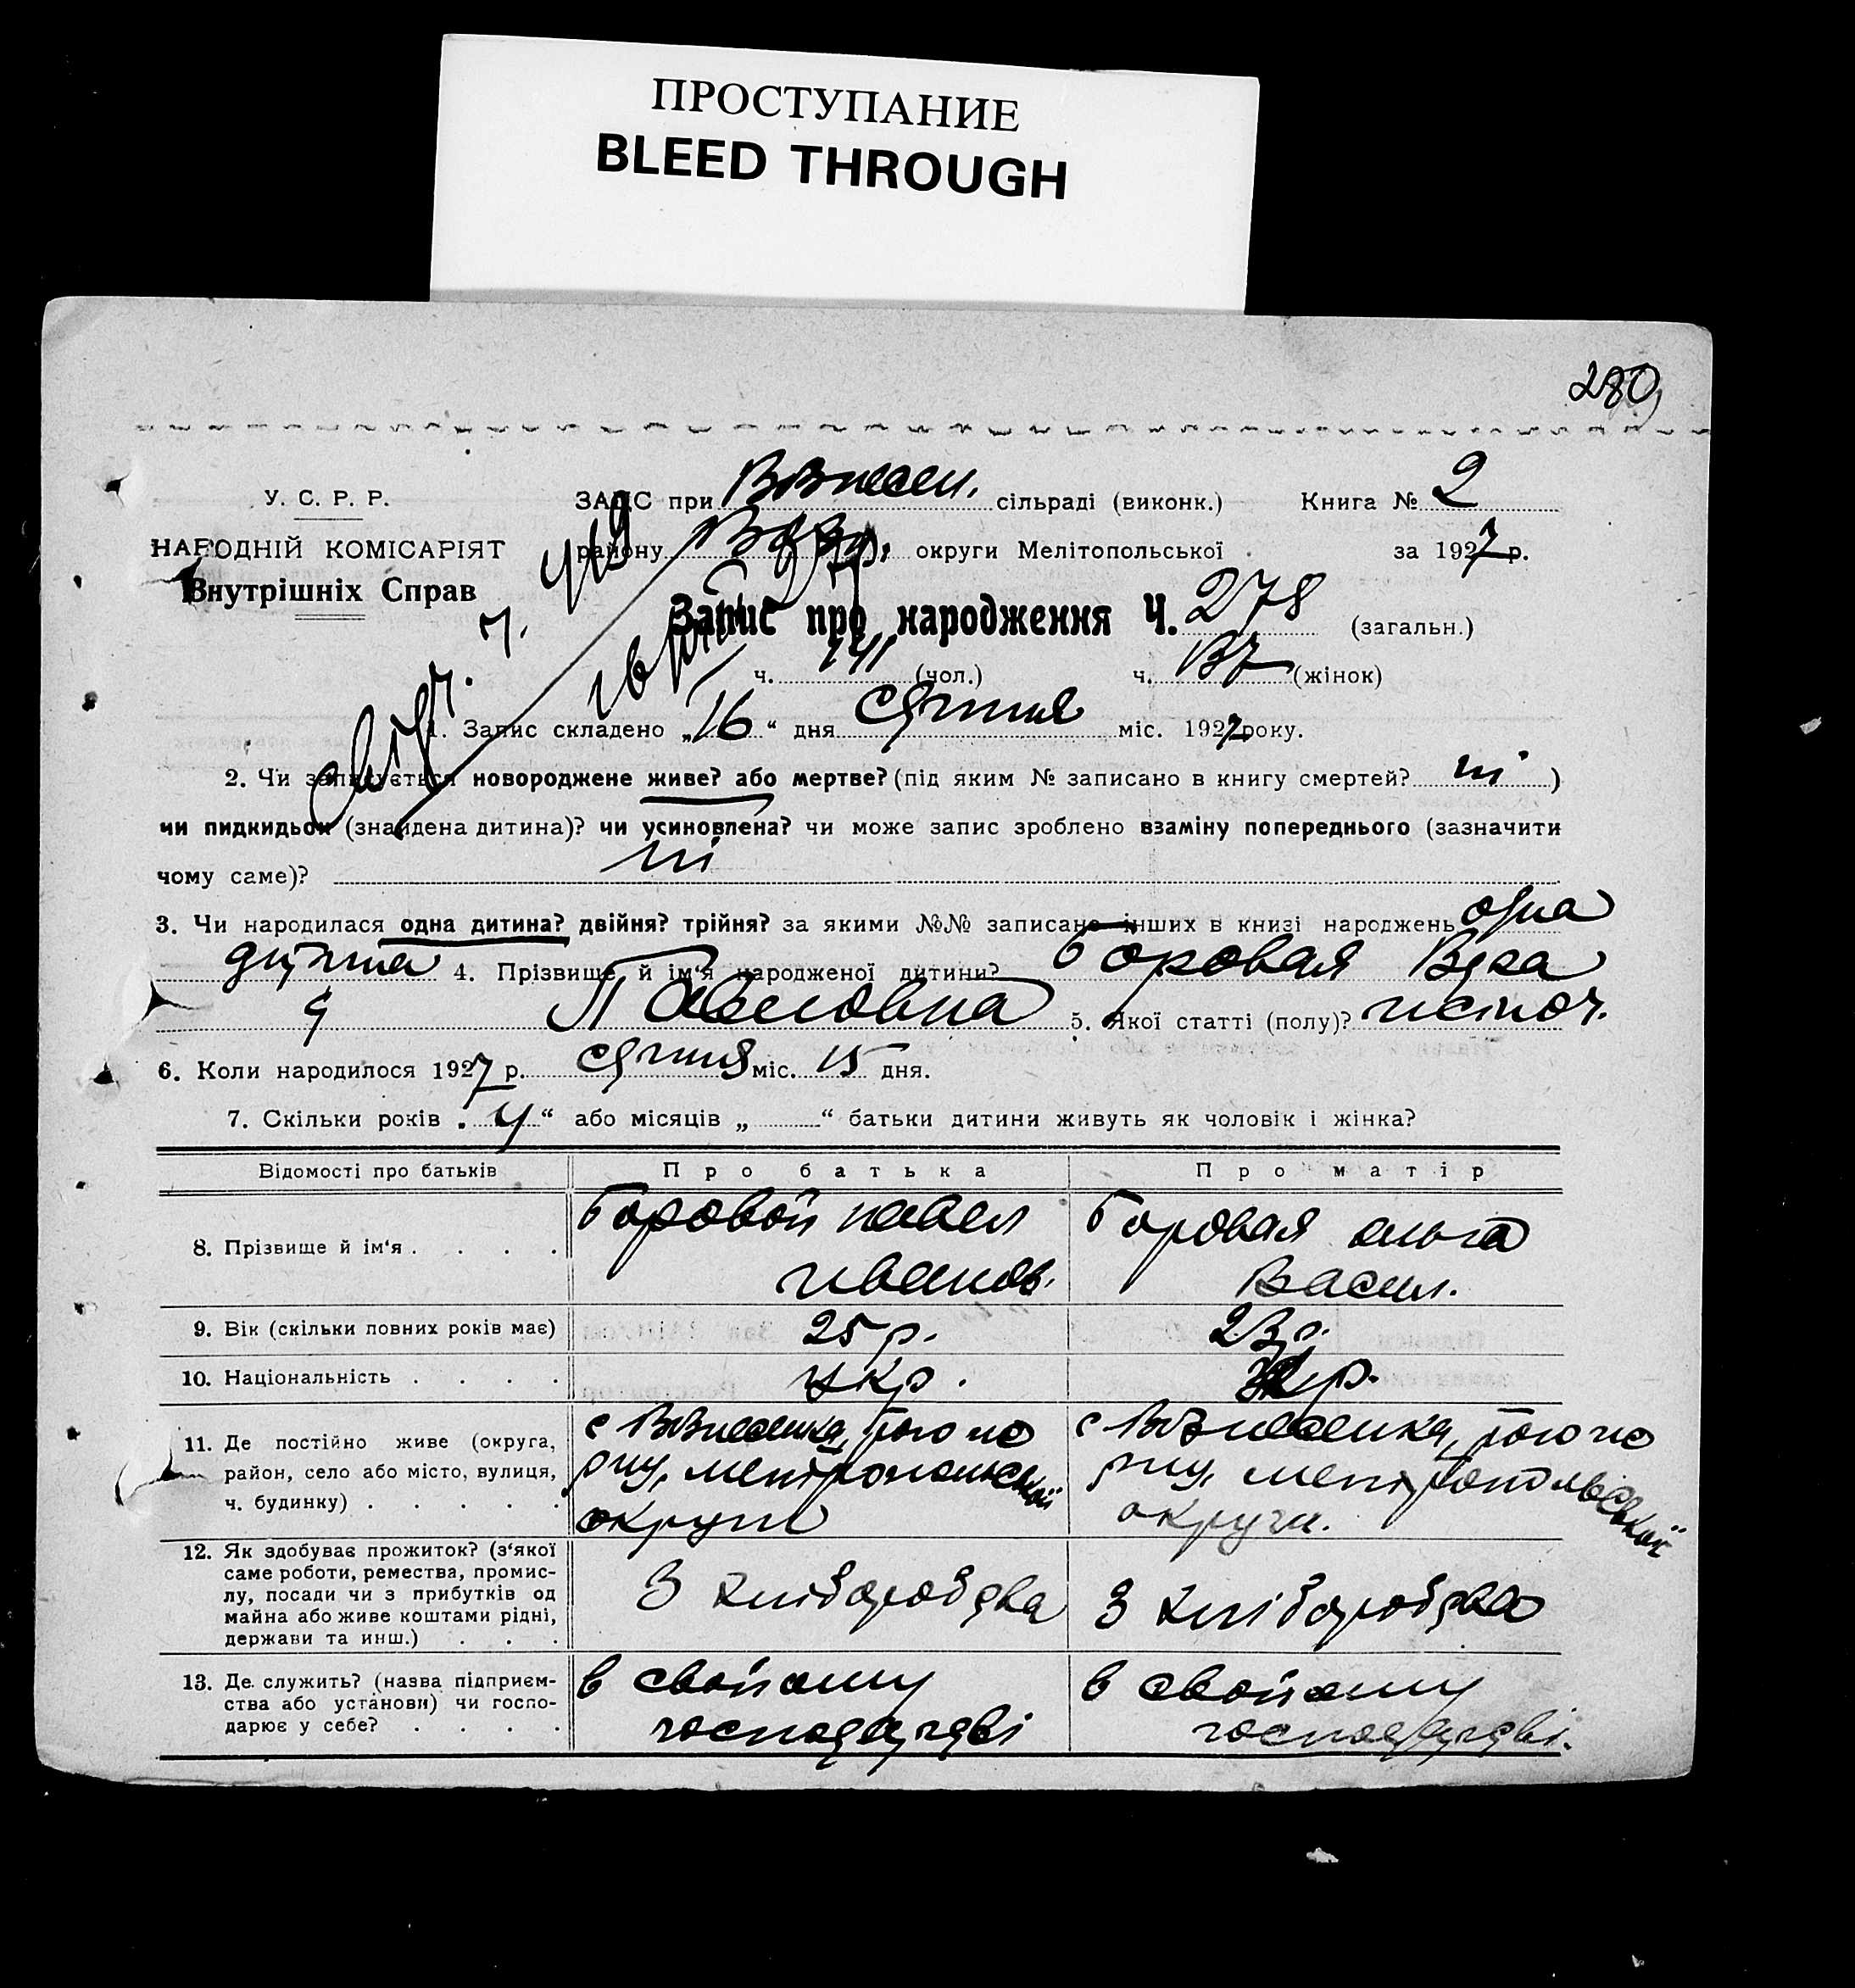 ПРОСТУПАНИЕ
BLEED THROUGH
280
У. С. Р. Р.
НАРОДНІЙ КОМІСАРІЯТ
Внутрішніх Справ
ЗАГС при Вознесен. сільраді (виконк.) Книга № 2
району округи Мелітопольської за 1927 р.
Запис про народження Ч. 278 (загальн.)
ч. 141 (чол.) ч. 137 (жінок)
1. Запис складено „16“ дня січния міс. 1927 року.
2. Чи записується новороджене живе? або мертве? (під яким № записано в книгу смертей? ні )
чи пидкидьок (знайдена дитина)? чи усиновлена? чи може запис зроблено взаміну попереднього (зазначити
чому саме)? ні
3. Чи народилася одна дитина? двійня? трійня? за якими №№ записано інших в книзі народжень одна
дитина 4. Прізвище й ім‘я народженої дитини? Боровая Вера
Павловна 5. Якої статті (полу)?
6. Коли народилося 1927 р. січния міс. 15 дня.
7. Скільки років „4“ або місяців „ “ батьки дитини живуть як чоловік і жінка?
Відомості про батьків Про батька Про матір
8. Прізвище й ім‘я . . . . Боровой Павел Иванов. Боровая Ольга Васил.
9. Вік (скільки повних років має) 25 р. 23 р.
10. Національність . . . . укр. укр.
11. Де постійно живе (округа,
район, село або місто, вулиця,
ч. будинку) . . . . .
с Вознесенка, того же
р-ну, Мелітопольської
округи
с Вознесенка, того же
р-ну, Мелітопольської
округи.
12. Як здобуває прожиток? (з‘якої
саме роботи, ремества, промис-
лу, посади чи з прибутків од
майна або живе коштами рідні,
держави та инш.) . . .
З хліборобства
З хліборобства
13. Де служить? (назва підприєм-
ства або установи) чи госпо-
дарює у себе? . . . .
в свойому
господарстві
в свойому
господарстві.